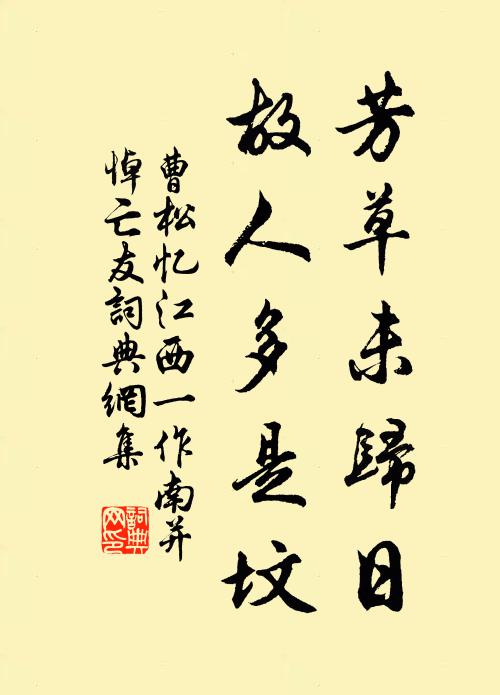 芳草未歸日
故人多是墳
曹松忆江西一作南并
悼亡友詞典網集
詞典
网印